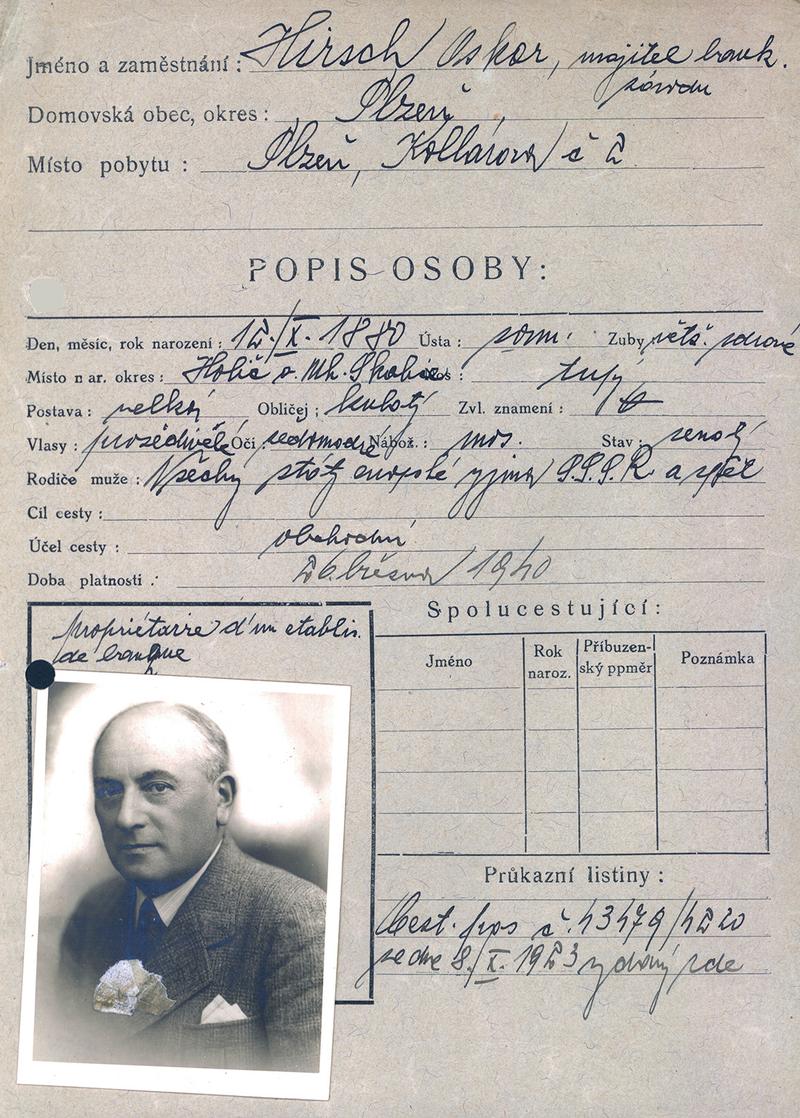 Jméno a zaměstnání : Hirsch Oskar, majitel bank.
závodu
Domovská obec, okres : Plzeň
Místo pobytu : Plzeň, Kollárova č 2
POPIS OSOBY:
Den, měsíc, rok narození : 12./X. 1880 Ústa : soum. Zuby větš. zdravé
Místo nar. okres : Holič o. Uh. Skalice os : tupý
Postava : velká Obličej ; kulatý Zvl. znamení :
Vlasy : prošedivělé Oči šedomodré Nábož. : mos. Stav : ženatý
Rodiče muže : Všechny státy evropské vyjma S.S.S.R. a zpět
Cíl cesty :
Účel cesty : obchodní
Doba platnosti : 26. března 1940
propriétaire d'un etablis.
de banque
Spolucestující :
Jméno Rok naroz. Příbuzen- ský ppměr Poznámka
Průkazní listiny :
Cest. pas č. 13479/1220
ze dne 8./X. 1923 vydaný zde